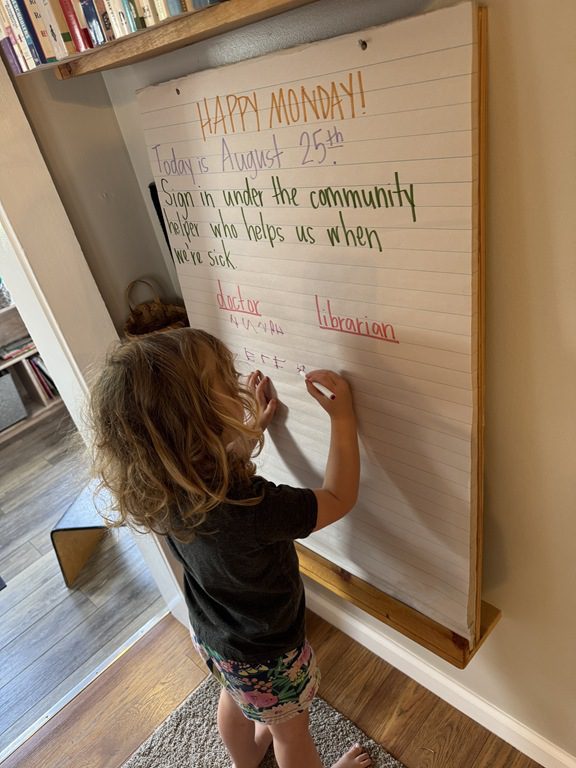 HAPPY MONDAY!
Today is August 25th.
Sign in under the community
helper who helps us when
we're sick.
doctor librarian